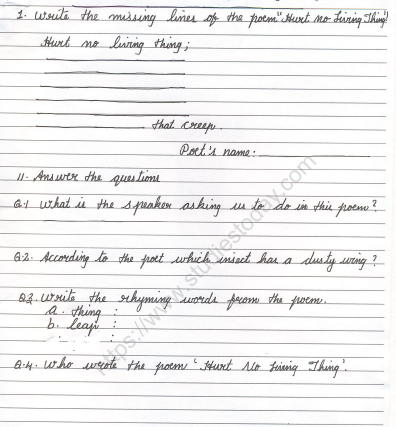 1. Write the missing lines of the poem "Hurt no Living Thing"
Hurt no living thing;
that creep.
Poet's name:
11. Answer the questions
Q.1 What is the speaker asking us to do in this poem?
Q.2. According to the poet which insect has a dusty wing?
Q3. Write the rhyming words from the poem.
a. thing :
b. leap :
Q.4. Who wrote the poem 'Hurt No Living Thing'.
https://www.studiestoday.com